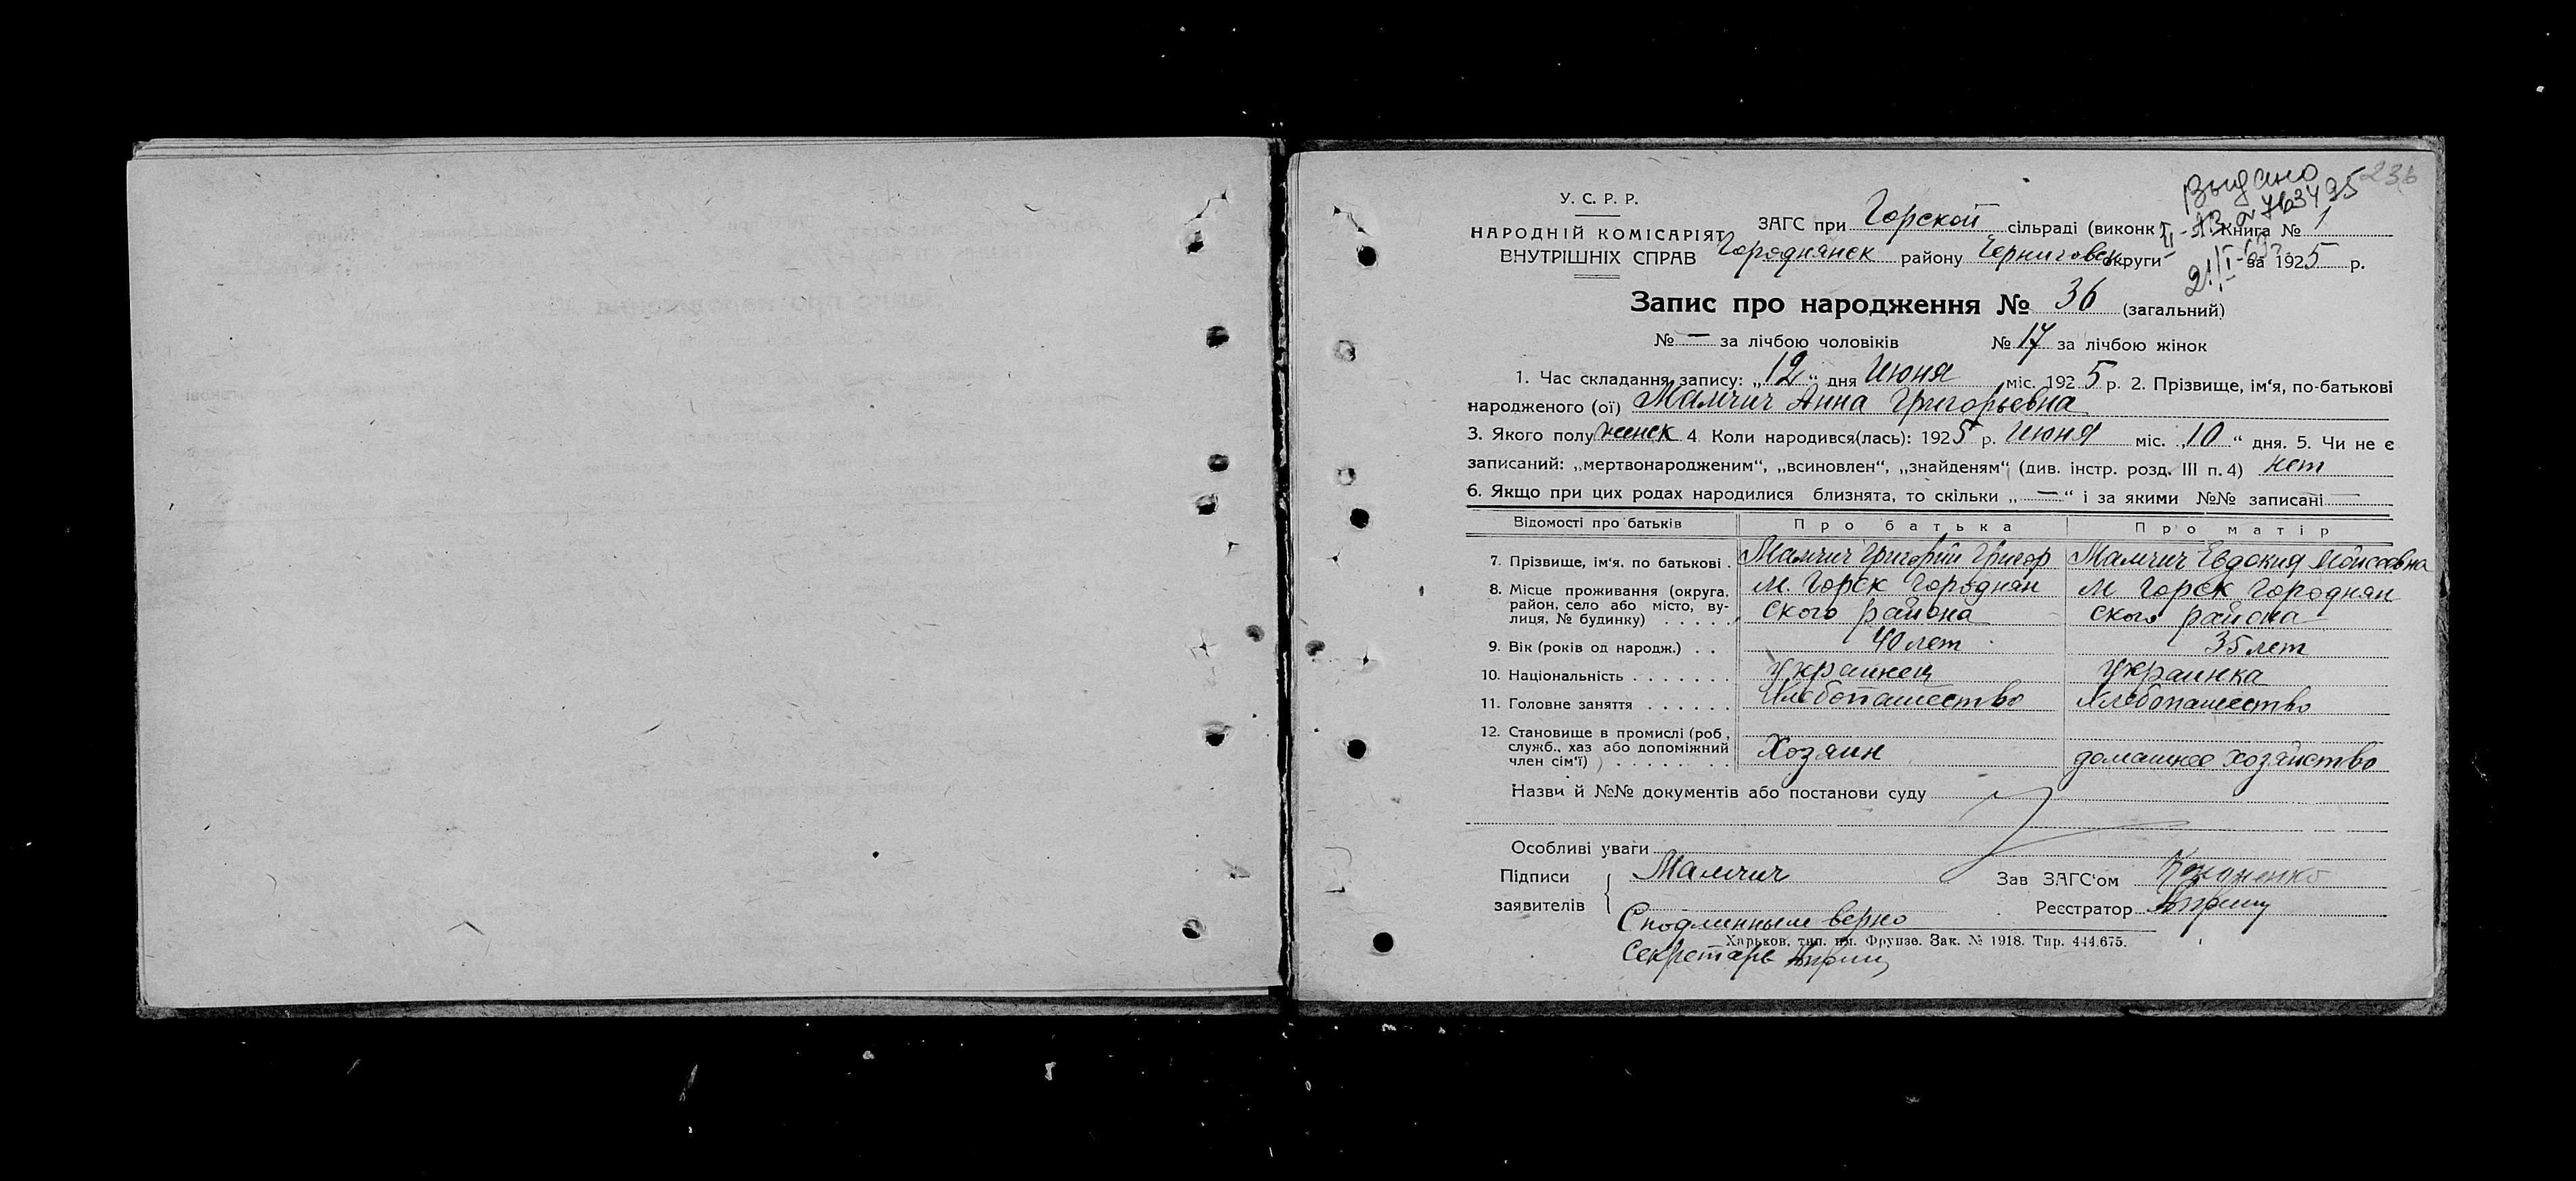 236
Выдано
У. С. Р. Р.
НАРОДНІЙ КОМІСАРІЯТ
ВНУТРІШНІХ СПРАВ
ЗАГС при Горской сільраді (виконк Книга № 1
Городнянск району Черниговск округи за 1925 р.
Запис про народження № 36 (загальний)
№ — за лічбою чоловіків № 17 за лічбою жінок
1. Час складання запису: „12“ дня Июня міс. 1925 р. 2. Прізвище, ім‘я, по-батькові
народженого (ої) Мамчич Анна Григорьевна
3. Якого полу женск 4 Коли народився(лась): 1925 р. Июня міс. „10“ дня. 5. Чи не є
записаний: „мертвонародженим“, „всиновлен“, „знайденям“ (див. інстр. розд. III п. 4) нет
6. Якщо при цих родах народилися близнята, то скільки „—“ і за якими №№ записані —
Відомості про батьків Про батька Про матір
7. Прізвище, ім‘я. по батькові . Мамчич Григорий Григор Мамчич Евдокия Моисеевна
8. Місце проживання (округа, м. Горск Городнян м Горск Городнян
район, село або місто, ву- ского района ского района
лиця, № будинку) . . . . .
9. Вік (років од народж.) . . 40 лет 35 лет
10. Національність . . . . . . . украинец украинка
11. Головне заняття . . . . . . Хлебопашество Хлебопашество
12. Становище в промислі (роб.,
служб., хаз або допоміжний Хозяин домашнее хозяйство
член сім‘ї) . . . . . . . .
Назви й №№ документів або постанови суду
Особливі уваги
Підписи Мамчич Зав ЗАГС‘ом Кононенко
заявителів Реєстратор
С подлинным верно
Харьков, тип. им. Фрунзе. Зак. № 1918. Тир. 444.675.
Секретарь